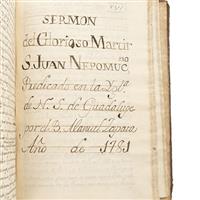 SERMON
del Glorioso Martir
S. JUAN NEPOMUC.no
Predicado en la Ygl.a
de N. S. de Guadalupe
por el B. Manuel Zapata
Año de 1781